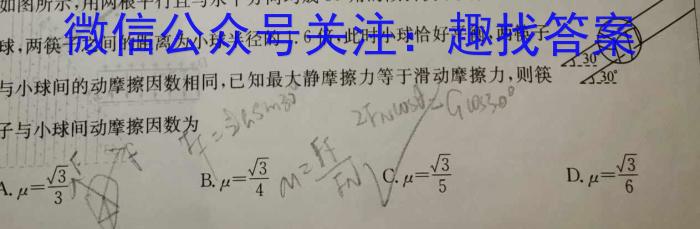 如图所示,用两根平行且与水平方向均成
微信公众号关注:趣找答案
球,两筷子之间的距离为小球半径的1.6倍,此时小球恰好 两筷子
与小球间的动摩擦因数相同,已知最大静摩擦力等于滑动摩擦力,则筷
子与小球间动摩擦因数为
30°
30°
2FNcosθ=Gcos30°
μ=Ff/FN
A. μ=√3/3 B. μ=√3/4 C. μ=√3/5 D. μ=√3/6